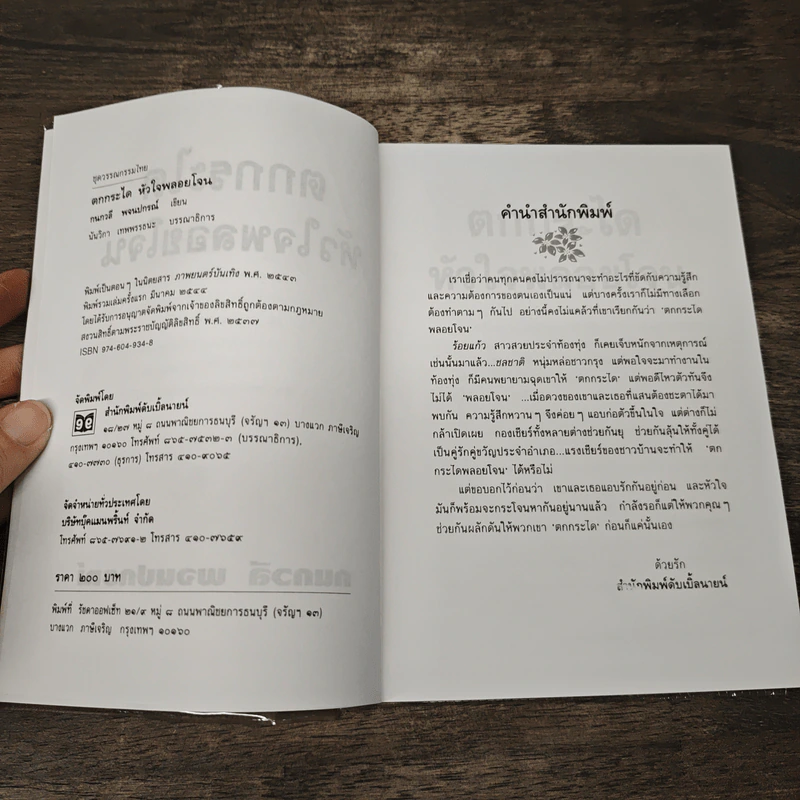 ชุดวรรณกรรมไทย
ตกกระได หัวใจพลอยโจน
กนกวลี พจนปกรณ์ เขียน
นันวิกา เทพพรรธนะ บรรณาธิการ
พิมพ์เป็นตอนๆ ในนิตยสาร ภาพยนตร์บันเทิง พ.ศ. ๒๕๔๓
พิมพ์รวมเล่มครั้งแรก มีนาคม ๒๕๔๔
โดยได้รับการอนุญาตจัดพิมพ์จากเจ้าของลิขสิทธิ์ถูกต้องตามกฎหมาย
สงวนสิทธิ์ตามพระราชบัญญัติลิขสิทธิ์ พ.ศ. ๒๕๓๗
ISBN 974-604-934-8
จัดพิมพ์โดย
สำนักพิมพ์ดับเบิ้ลนายน์
๑๘/๒๗ หมู่ ๘ ถนนพาณิชยการธนบุรี (จรัญฯ ๑๓) บางแวก ภาษีเจริญ
กรุงเทพฯ ๑๐๑๖๐ โทรศัพท์ ๘๖๕-๗๕๓๒-๓ (บรรณาธิการ),
๔๑๐-๗๗๓๐ (ธุรการ) โทรสาร ๔๑๐-๙๐๖๕
จัดจำหน่ายทั่วประเทศโดย
บริษัทบุ๊คแมนพริ้นท์ จำกัด
โทรศัพท์ ๘๖๕-๗๖๙๑-๒ โทรสาร ๔๑๐-๗๖๕๙
ราคา ๒๐๐ บาท
พิมพ์ที่ รัชดาออฟเซ็ท ๒๑/๙ หมู่ ๘ ถนนพาณิชยการธนบุรี (จรัญฯ ๑๓)
บางแวก ภาษีเจริญ กรุงเทพฯ ๑๐๑๖๐
คำนำสำนักพิมพ์
เราเชื่อว่าคนทุกคนคงไม่ปรารถนาจะทำอะไรที่ขัดกับความรู้สึก
และความต้องการของตนเองเป็นแน่ แต่บางครั้งเราก็ไม่มีทางเลือก
ต้องทำตามๆ กันไป อย่างนี้คงไม่แคล้วที่เขาเรียกกันว่า 'ตกกระได
พลอยโจน'
ร้อยแก้ว สาวสวยประจำท้องทุ่ง ก็เคยเจ็บหนักจากเหตุการณ์
เช่นนั้นมาแล้ว...ชลชาติ หนุ่มหล่อชาวกรุง แต่พอใจจะมาทำงานใน
ท้องทุ่ง ก็มีคนพยายามฉุดเขาให้ 'ตกกระได' แต่พอดีไหวตัวทันจึง
ไม่ได้ 'พลอยโจน' ...เมื่อดวงของเขาและเธอที่แสนต้องชะตาได้มา
พบกัน ความรู้สึกหวานๆ จึงค่อยๆ แอบก่อตัวขึ้นในใจ แต่ต่างก็ไม่
กล้าเปิดเผย กองเชียร์ทั้งหลายต่างช่วยกันยุ ช่วยกันลุ้นให้ทั้งคู่ได้
เป็นคู่รักคู่ขวัญประจำอำเภอ...แรงเชียร์ของชาวบ้านจะทำให้ 'ตก
กระไดพลอยโจน' ได้หรือไม่
แต่ขอบอกไว้ก่อนว่า เขาและเธอแอบรักกันอยู่ก่อน และหัวใจ
มันก็พร้อมจะกระโจนหากันอยู่นานแล้ว กำลังรอก็แต่ให้พวกคุณๆ
ช่วยกันผลักดันให้พวกเขา 'ตกกระได' ก่อนก็แค่นั้นเอง
ด้วยรัก
สำนักพิมพ์ดับเบิ้ลนายน์